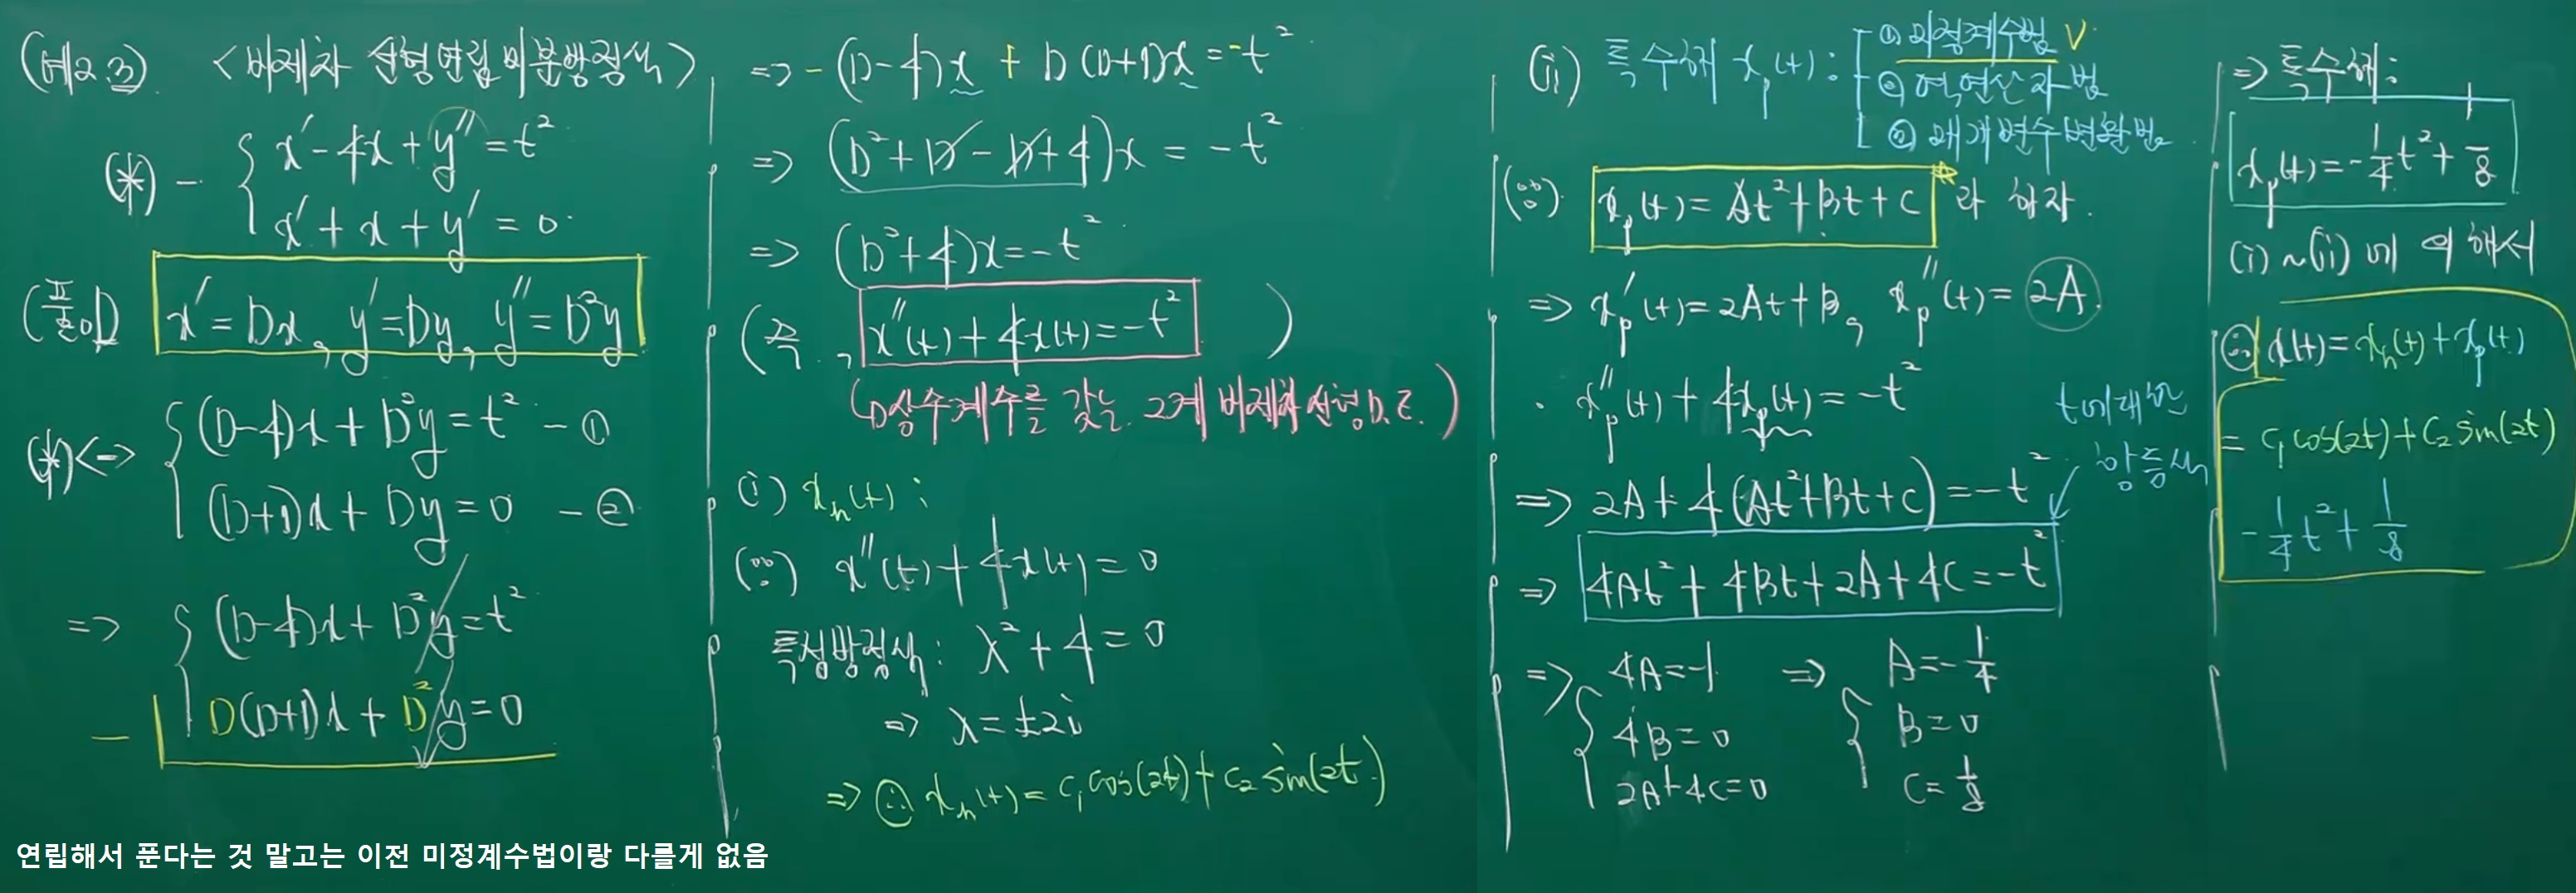 (예2.3) <비제차 선형연립미분방정식>
(*) - { x' - 4x + y'' = t²
x' + x + y' = 0.
(풀이) x' = Dx, y' = Dy, y'' = D²y
(*) <-> { (D-4)x + D²y = t² - ①
(D+1)x + Dy = 0 - ②
=> { (D-4)x + D²y = t²
- D(D+1)x + D²y = 0
연립해서 푼다는 것 말고는 이전 미정계수법이랑 다를게 없음
=> -(D-4)x + D(D+1)x = -t²
=> (D² + D - D + 4)x = -t²
=> (D²+4)x = -t²
(즉, x''(t) + 4x(t) = -t² )
(D상수계수를 갖는 2계 비제차선형D.E.)
(i) xₕ(t) :
(∵) x''(t) + 4x(t) = 0
특성방정식: λ² + 4 = 0
=> λ = ±2i
=> ∴ xₕ(t) = c₁cos(2t) + c₂sin(2t)
(ii) 특수해 xₚ(t) : ① 미정계수법 V
② 역연산자법
③ 매개변수변환법
(∵) xₚ(t) = At² + Bt + C 라 하자.
=> xₚ'(t) = 2At + B, xₚ''(t) = 2A
· xₚ''(t) + 4xₚ(t) = -t²
t에대한
항등식
=> 2A + 4(At² + Bt + C) = -t²
=> 4At² + 4Bt + 2A + 4C = -t²
=> { 4A = -1 => { A = -1/4
4B = 0 B = 0
2A + 4C = 0 C = 1/8
=> 특수해:
xₚ(t) = -1/4 t² + 1/8
(i)~(ii)에 의해서
∴ x(t) = xₕ(t) + xₚ(t)
= c₁cos(2t) + c₂sin(2t)
- 1/4 t² + 1/8